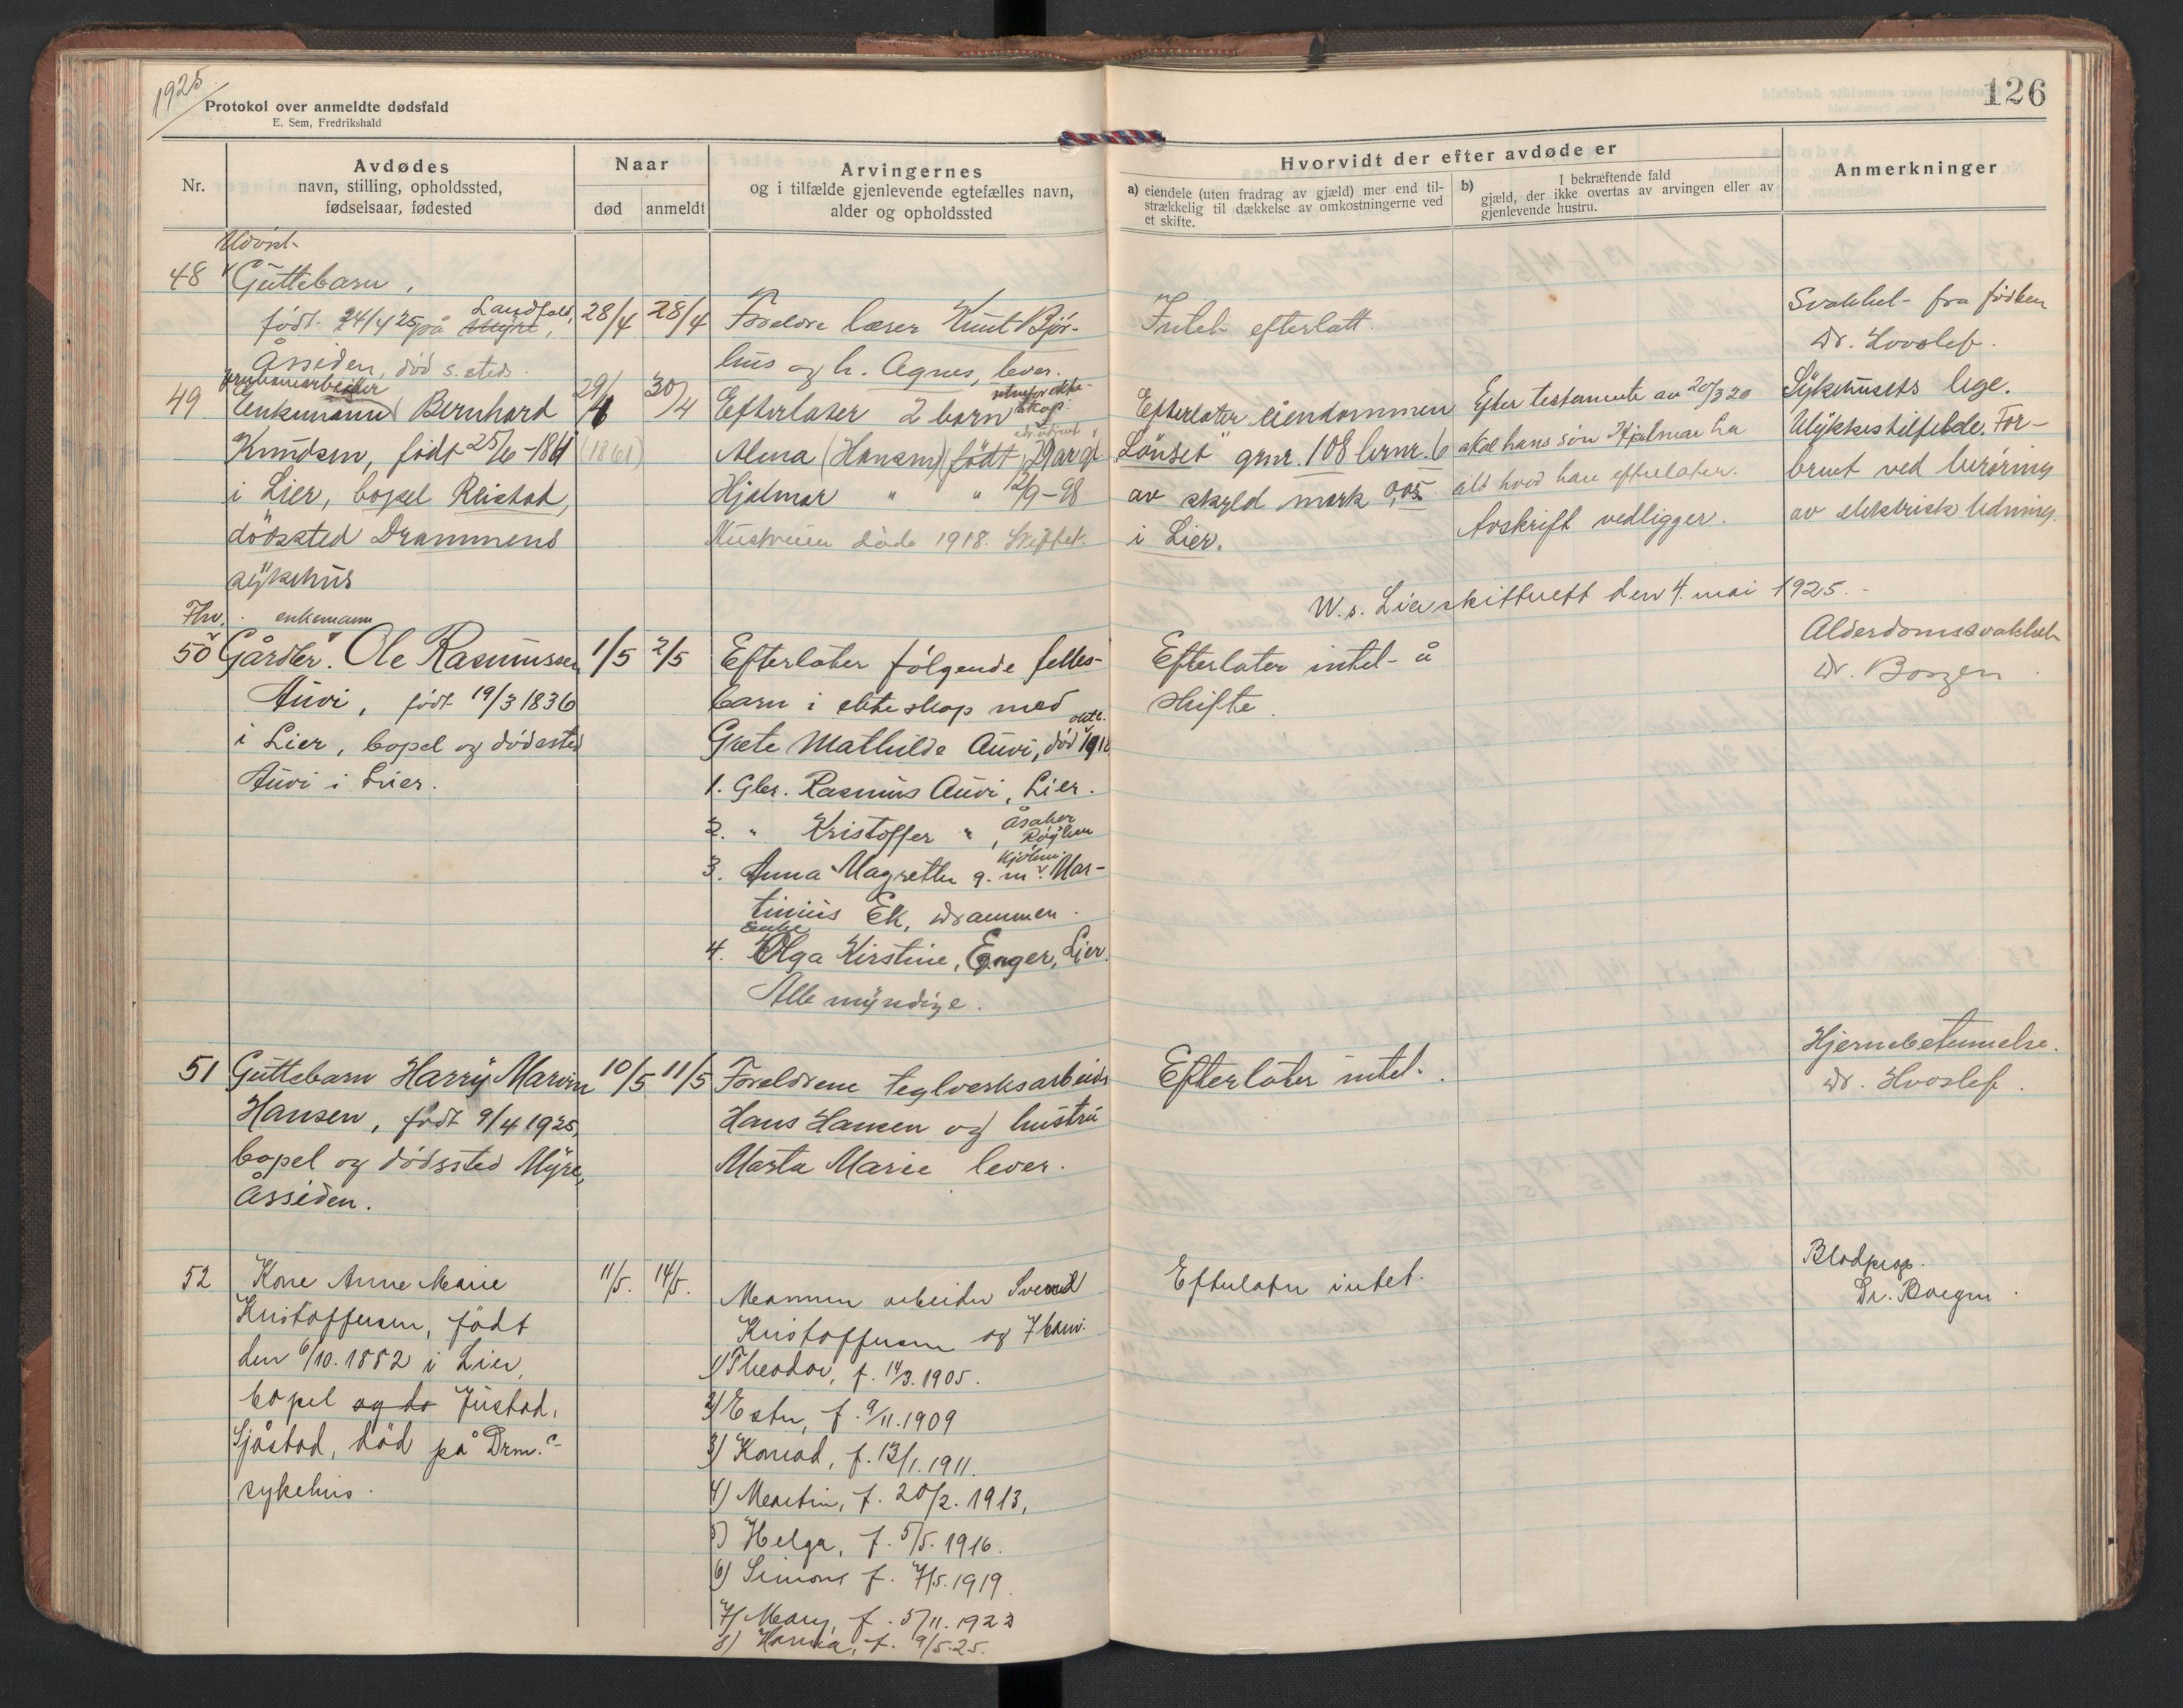 1925
Protokol over anmeldte dødsfald
E. Sem, Fredrikshald
126
Nr.
Avdødes
navn, stilling, opholdssted,
fødselsaar, fødested
Naar
død
anmeldt
Arvingernes
og i tilfælde gjenlevende egtefælles navn,
alder og opholdssted
Hvorvidt der efter avdøde er
a) eiendele (uten fradrag av gjæld) mer end til-
strækkelig til dækkelse av omkostningerne ved
et skifte.
b) I bekræftende fald
gjæld, der ikke overtas av arvingen eller av
gjenlevende hustru.
Anmerkninger
Udöpt
48
Guttebarn,
født 24/4 25 på Landfald,
Åssiden, død s. steds.
28/4
28/4
Foreldre læser Knut Björ-
hus og h. Agnes, lever.
Intet efterlatt.
Svakhet fra fødsen
Dr. Hovslef.
49
jernbanearbeider
Enkemann Bernhard
Knudsen, født 25/6-1861
i Lier, bopel Reistad,
dödssted Drammens
sykehus
29/4
(1861)
30/4
Efterlater 2 barn utenfor ekte-
skap:
Alma (Hansen) født, 29 år gl
Hjalmar " " 2/9-98
Hustruen døde 1918. Skiftet.
Efterlater eiendommen
"Lönset" gnr. 108 brnr. 6
av skyld mark 0,05
i Lier.
Efter testamente av 20/3 20
skal hans sön Hjalmar ha
alt hvad han efterlater.
Avskrift vedligger.
Sykehusets lege.
Ulykkestilfelde. For-
brent ved beröring
av elektrisk ledning.
W. s. Lier skifterett den 4. mai 1925.
50
enkemann
Gårdbr. Ole Rasmussen
Auvi, født 19/3 1836
i Lier, bopel og dødssted
Auvi i Lier.
1/5
2/5
Efterlater følgende felles-
barn i ekteskap med
Grete Mathilde Auvi, död 1918
1. Gbr. Rasmus Auvi, Lier.
2. " Kristoffer ", Åsaker
Røyken
3. Anna Magrethe g. m. Kjøbm. Mar-
tinius Ek, Drammen.
Enke
4. Olga Kirstine, Enger, Lier.
Alle myndige.
Efterlater intet å
skifte.
Alderdomssvakhet
Dr. Borgen
51
Guttebarn Harry Marvin
Hansen, født 9/4 1925,
bopel og dødssted Myre,
Åssiden.
10/5
11/5
Foreldrene teglverksarbeider
Hans Hansen og hustru
Marta Marie lever.
Efterlater intet.
Hjernebetennelse.
Dr. Hovslef.
52
Kone Anne Marie
Kristoffersen, født
den 6/10. 1882 i Lier,
bopel og do Justad,
Sjåstad, död på Drm.s
sykehus.
11/5.
14/5.
Mannen arbeider Svend
Kristoffersen og 7 barn:
1) Theodor, f. 14/3. 1905.
2) Ester, f. 9/11. 1909
3) Konrad, f. 13/1. 1911.
4) Martin, f. 20/2. 1913,
5) Helga, f. 5/5. 1916.
6) Simone f. 7/5. 1919.
7) Mary, f. 5/11. 1923
8) Hanna, f. 9/5-25.
Efterlater intet.
Blodprop.
Dr. Borgen.